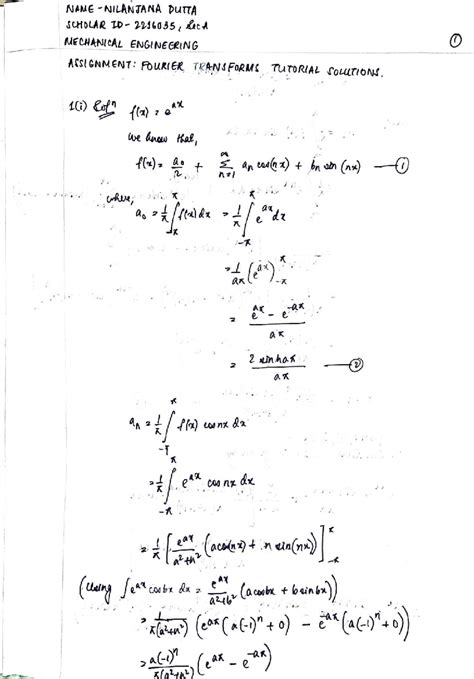 NAME - NILANJANA DUTTA
SCHOLAR ID - 2216035, Sec A
MECHANICAL ENGINEERING
①
ASSIGNMENT: FOURIER TRANSFORMS TUTORIAL SOLUTIONS.
1(i) Solⁿ f(x) = e^{ax}
We know that,
f(x) = a₀/2 + Σ_{n=1}^{∞} aₙ cos(nx) + bₙ sin(nx) —①
where,
a₀ = 1/π ∫_{-π}^{π} f(x) dx = 1/π ∫_{-π}^{π} e^{ax} dx
= 1/aπ (e^{ax})_{-π}^{π}
= (e^{aπ} - e^{-aπ})/aπ
= 2 sinh aπ/aπ —②
aₙ = 1/π ∫_{-π}^{π} f(x) cos nx dx
= 1/π ∫_{-π}^{π} e^{ax} cos nx dx
= 1/π [e^{ax}/(a²+n²) (a cos(nx) + n sin(nx))]_{-π}^{π}
(Using ∫e^{ax} cos bx dx = e^{ax}/(a²+b²) (a cos bx + b sin bx))
= 1/π(a²+n²) (e^{aπ} (a(-1)ⁿ + 0) - e^{-aπ} (a(-1)ⁿ + 0))
= a(-1)ⁿ/π(a²+n²) (e^{aπ} - e^{-aπ})